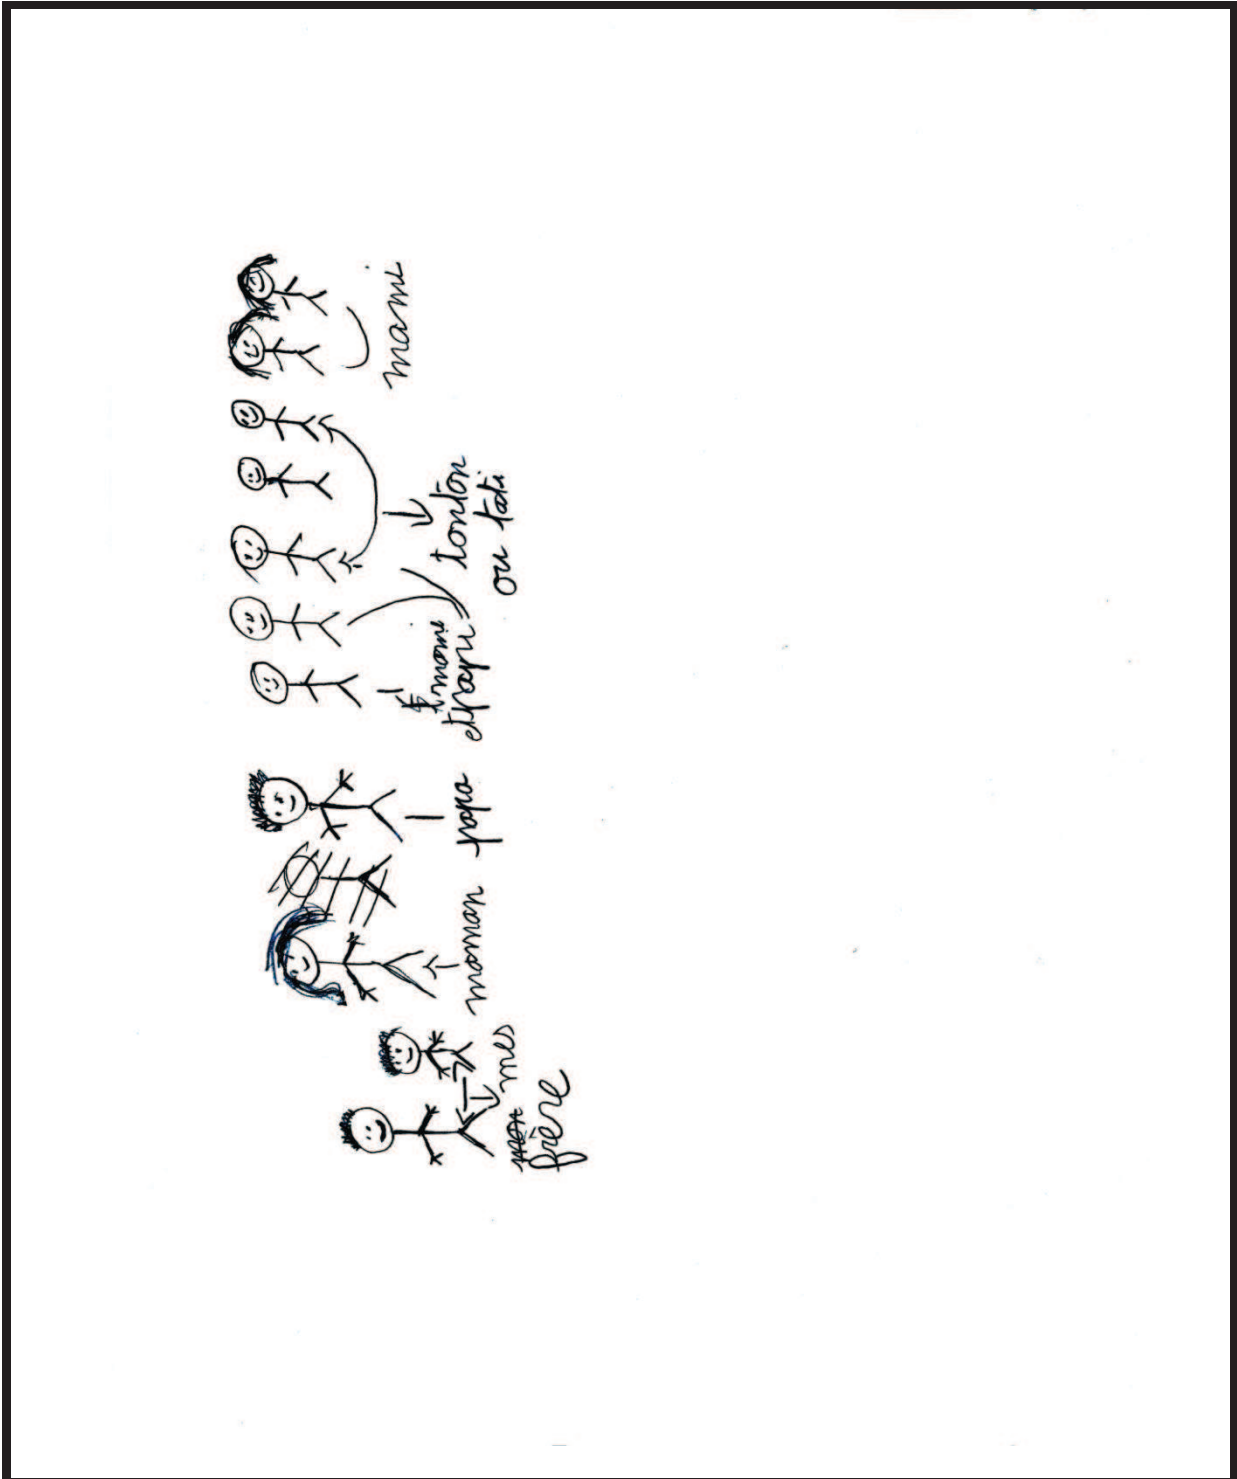 mes
mon
frère
maman
papa
mami
et papi
tonton
ou tati
mami